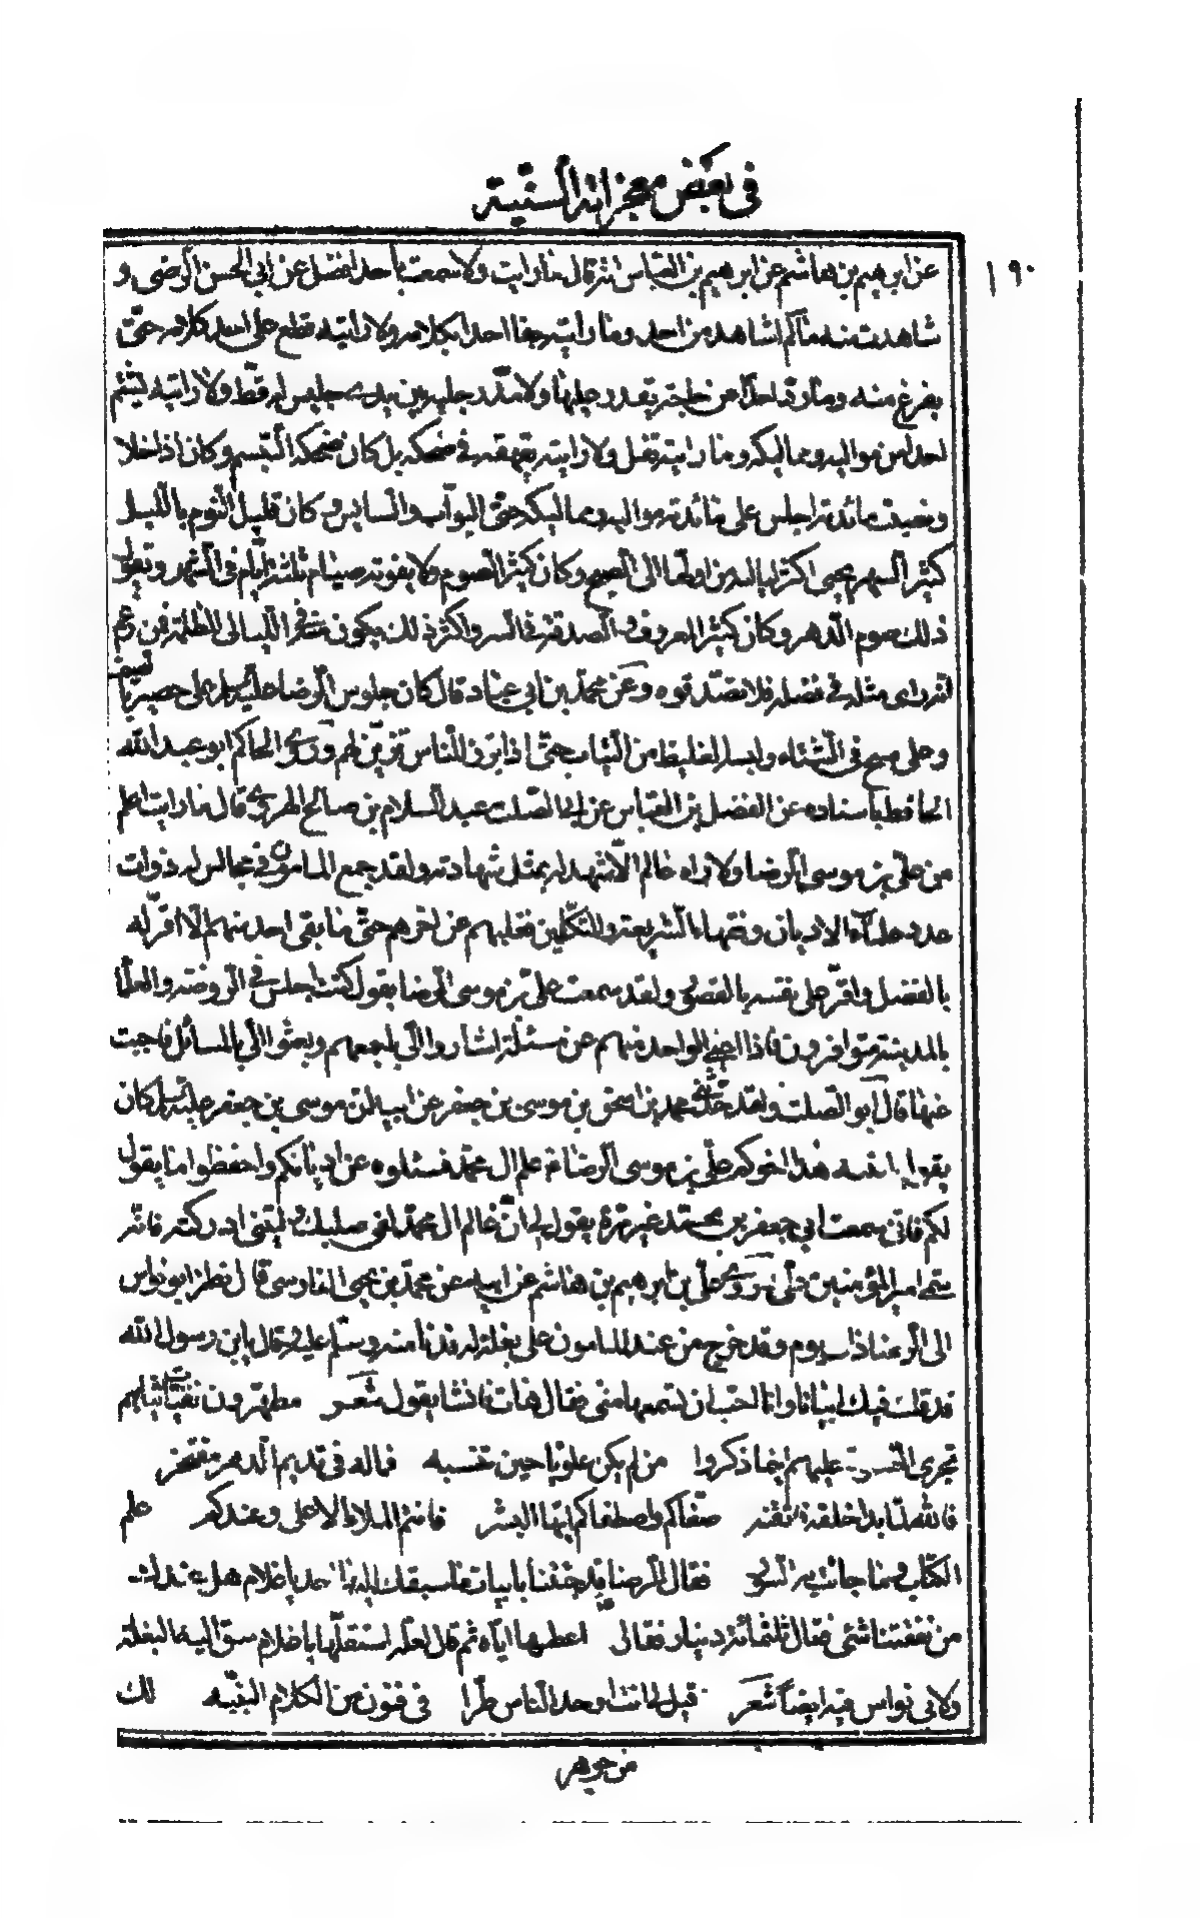 في بعض معجزاته السنية
١٩٠
عن ابرهيم بن هاشم عن ابرهيم بن العباس انه قال ما رايت ولا سمعت بأحد افضل عن ابي الحسن الرضى و
شاهدت منه ما لم اشاهد من احد وما رايته جفا احدا بكلامه ولا رايته قطع على احد كلامه حتى
يفرغ منه وما رد احدا عن حاجة يقدر عليها ولا مدّ رجليه بين يدي جليس له قطّ ولا رايته يشتم
احدا من مواليه ومماليكه وما رايته تفل ولا رايته يقهقه في ضحكه بل كان ضحكه التبسم وكان اذا خلا
ونصبت مائدته اجلس على مائدته مواليه ومماليكه حتى البواب والسايس وكان قليل النوم بالليل
كثير السهر يحيى اكثر لياليه من اولها الى الصبح وكان كثير الصوم ولا يفوته صيام ثلثة ايام في الشهر ويقول
ذلك صوم الدهر وكان كثير المعروف والصدقة في السر واكثر ذلك يكون منه في الليالى المظلمة فمن زعم
انه راى مثله في فضله فلا تصدّقوه وعن محمد بن ابي عباد قال كان جلوس الرضا عليه السلم على حصير بالصيف
وعلى مسح في الشتاء ولبسه الغليظ من الثياب حتى اذا برز للناس تزيّن لهم وروى الحاكم ابو عبد الله
الحافظ باسناده عن الفضل بن العباس عن ابي الصلت عبد السلام بن صالح الهروي قال ما رايت اعلم
من علي بن موسى الرضا ولا راه عالم الّا شهد له بمثل شهادته ولقد جمع المامون في مجالس له ذوات
عدد علماء الاديان وفقهاء الشريعة والمتكلمين فغلبهم عن اخرهم حتى ما بقى احد منهم الّا اقرّ له
بالفضل واقرّ على نفسه بالقصور ولقد سمعت علي بن موسى الرضا يقول كنت اجلس في الروضة والعلماء
بالمدينة متوافرون فاذا اعيى الواحد منهم عن مسئلة اشاروا اليّ باجمعهم وبعثوا اليّ بالمسائل فاجبت
عنها قال ابو الصلت ولقد حدثني محمد بن اسحق بن موسى بن جعفر عن ابيه ان موسى بن جعفر عليه السلم كان
يقول لبنيه هذا اخوكم علي بن موسى الرضا عالم ال محمد فسئلوه عن اديانكم واحفظوا ما يقول
لكم فاني سمعت ابي جعفر بن محمد غير مرة يقول لي انّ عالم ال محمد لفي صلبك وليتني ادركته فانه
سمّي امير المؤمنين علي وروى علي بن ابرهيم بن هاشم عن ابيه عن محمد بن يحيى الفارسى قال نظر ابو نواس
الى الرضا ذات يوم وقد خرج من عند المامون على بغلة له فدنا منه وسلم عليه وقال يابن رسول الله
قد قلت فيك ابياتا وانا احب ان تسمعها منى فقال هات فانشا يقول شعر مطهّرون نقيّات ثيابهم
تجرى الصلوة عليهم اينما ذكروا من لم يكن علويا حين تنسبه فماله في قديم الدهر مفتخر
فالله لمّا بدا خلقا فاتقنه صفّاكم واصطفاكم ايّها البشر فانتم الملاء الاعلى وعندكم علم
الكتاب وما جائت به السور فقال الرضا قد جئتنا بابيات ما سبقك اليها احد يا غلام هل معك
من نفقتنا شئ فقال ثلثمائة دينار فقال اعطها ايّاه ثم قال لعلّه استقلّها يا غلام سق اليه البغلة
ولابي نواس فيه ايضاً شعر قيل لى انت اوحد الناس طرّا في فنون من الكلام النبيه لك
من جوهر